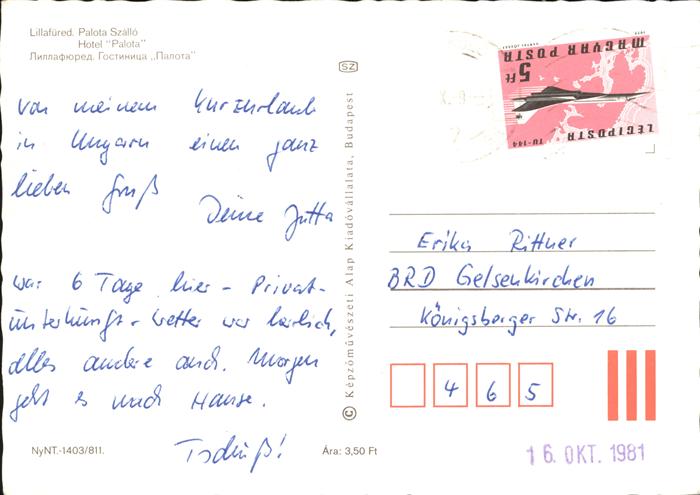 Lillafüred. Palota Szálló
Hotel "Palota"
Лиллафюред. Гостиница „Палота"
von meinem Kurzurlaub
in Ungarn einen ganz
lieben Gruß
Deine Jutta
war 6 Tage hier - Privat-
unterkunft - Wetter war herrlich,
alles andere auch. Morgen
geht es nach Hause.
Tschüß!
NyNT.-1403/811.
Ára: 3,50 Ft
SZ
© Képzőművészeti Alap Kiadóvállalata, Budapest
MAGYAR POSTA
5 Ft
LÉGIPOSTA
TU-144
Erika Rittner
BRD Gelsenkirchen
Königsberger Str. 16
465
16. OKT. 1981